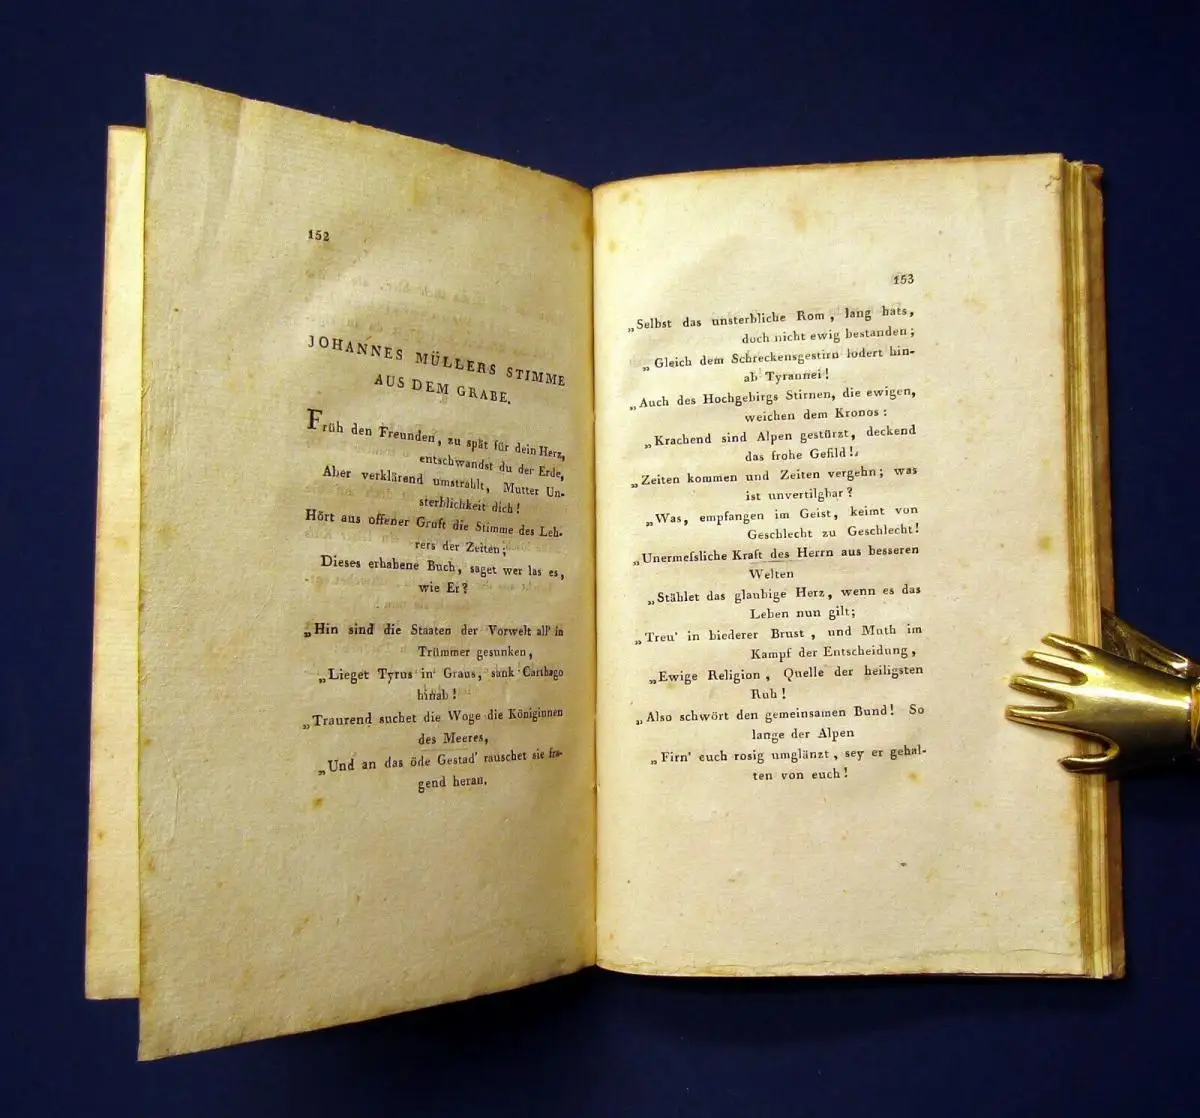 152
JOHANNES MÜLLERS STIMME
AUS DEM GRABE.
Früh den Freunden, zu spät für dein Herz,
entschwandst du der Erde,
Aber verklärend umstrahlt, Mutter Un-
sterblichkeit dich!
Hört aus offener Gruft die Stimme des Leh-
rers der Zeiten;
Dieses erhabene Buch, saget wer las es,
wie Er?
„Hin sind die Staaten der Vorwelt all' in
Trümmer gesunken,
„Lieget Tyrus in Graus, sank Carthago
hinab!
„Traurend suchet die Woge die Königinnen
des Meeres,
„Und an das öde Gestad' rauschet sie fra-
gend heran.
153
„Selbst das unsterbliche Rom, lang hats,
doch nicht ewig bestanden;
„Gleich dem Schreckensgestirn lodert hin-
ab Tyrannei!
„Auch des Hochgebirgs Stirnen, die ewigen,
weichen dem Kronos:
„Krachend sind Alpen gestürzt, deckend
das frohe Gefild!
„Zeiten kommen und Zeiten vergehn; was
ist unvertilgbar?
„Was, empfangen im Geist, keimt von
Geschlecht zu Geschlecht!
„Unermeſsliche Kraft des Herrn aus besseren
Welten
„Stählet das glaubige Herz, wenn es das
Leben nun gilt;
„Treu' in biederer Brust, und Muth im
Kampf der Entscheidung,
„Ewige Religion, Quelle der heiligsten
Ruh!
„Also schwört den gemeinsamen Bund! So
lange der Alpen
„Firn' euch rosig umglänzt, sey er gehal-
ten von euch!